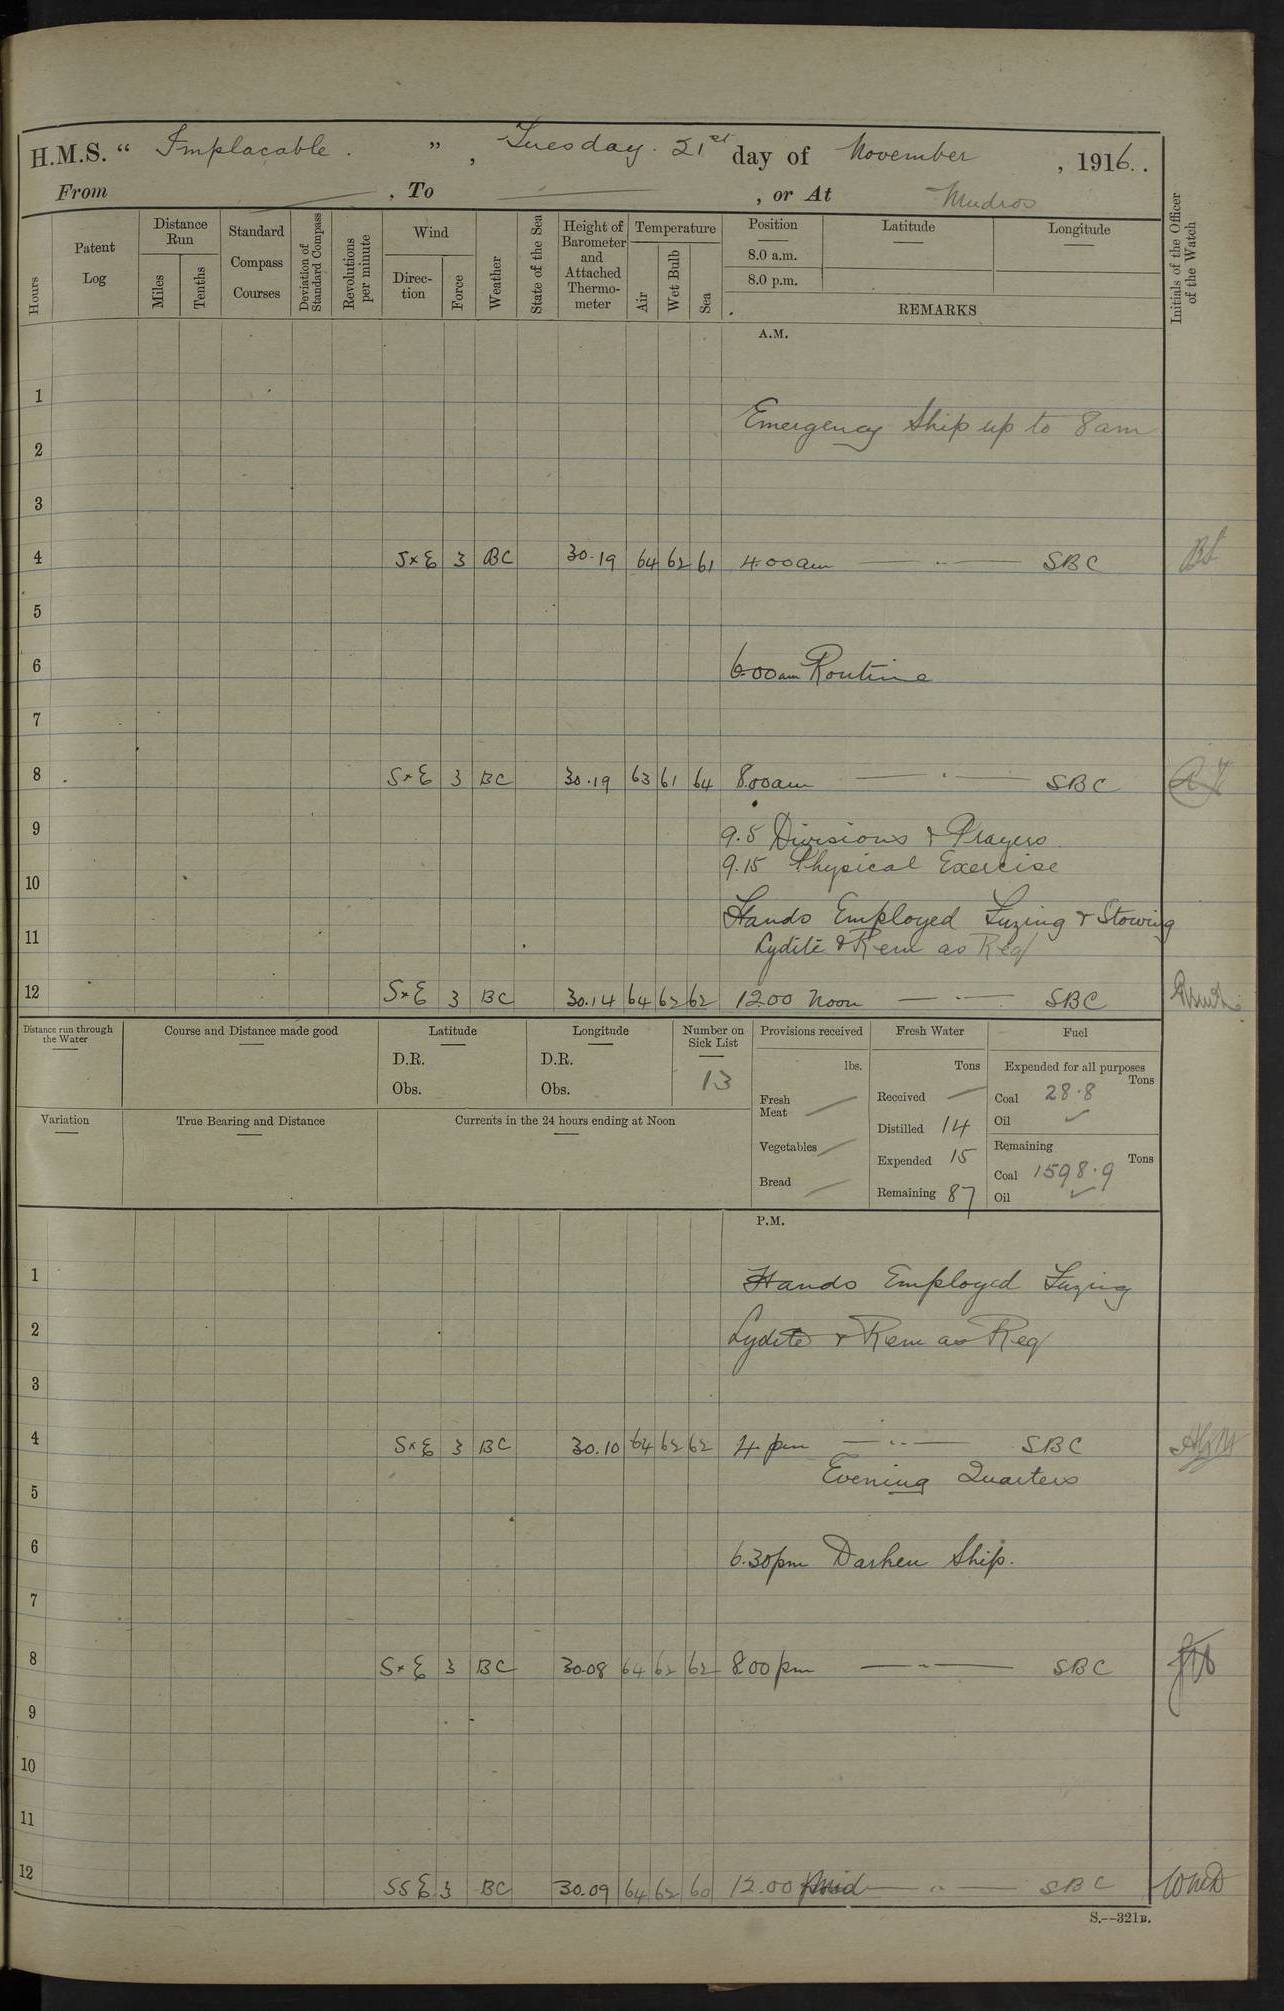 H.M.S. “ Implacable . ” , Tuesday. 21st day of November , 1916 . .
From , To , or At Mudros
Hours
Patent Log
Distance Run
Miles
Tenths
Standard Compass Courses
Deviation of Standard Compass
Revolutions per minute
Wind
Direc-tion
Force
Weather
State of the Sea
Height of Barometer and Attached Thermo-meter
Temperature
Air
Wet Bulb
Sea
Position
8.0 a.m.
8.0 p.m.
Latitude
Longitude
REMARKS
Initials of the Officer of the Watch
A.M.
1
Emergency Ship up to 8am
2
3
4 SxE 3 BC 30.19 64 62 61 4.00am — " — SBC
5
6 6.00am Routine
7
8 SxE 3 BC 30.19 63 61 64 8.00am — " — SBC
9 9.5 Divisions & Prayers
9.15 Physical Exercise
10
Hands Employed Fuzing & Stowing
11 Lydite & Rem as Req
12 SxE 3 BC 30.14 64 62 62 12.00 Noon — " — SBC
Distance run through the Water
Course and Distance made good
Latitude
D.R.
Obs.
Longitude
D.R.
Obs.
Number on Sick List
13
Provisions received
lbs.
Fresh Meat
Vegetables
Bread
Fresh Water
Tons
Received
Distilled 14
Expended 15
Remaining 87
Fuel
Expended for all purposes
Tons
Coal 28.8
Oil ✓
Remaining
Tons
Coal 1598.9
Oil ✓
Variation
True Bearing and Distance
Currents in the 24 hours ending at Noon
P.M.
1 Hands Employed Fuzing
2 Lydite & Rem as Req
3
4 SxE 3 BC 30.10 64 62 62 4 pm — " — SBC
Evening Quarters
5
6 6.30pm Darken Ship.
7
8 SxE 3 BC 30.08 64 62 62 8.00 pm — " — SBC
9
10
11
12 SSE 3 BC 30.09 64 62 60 12.00 Mid — " — SBC
S.—321B.